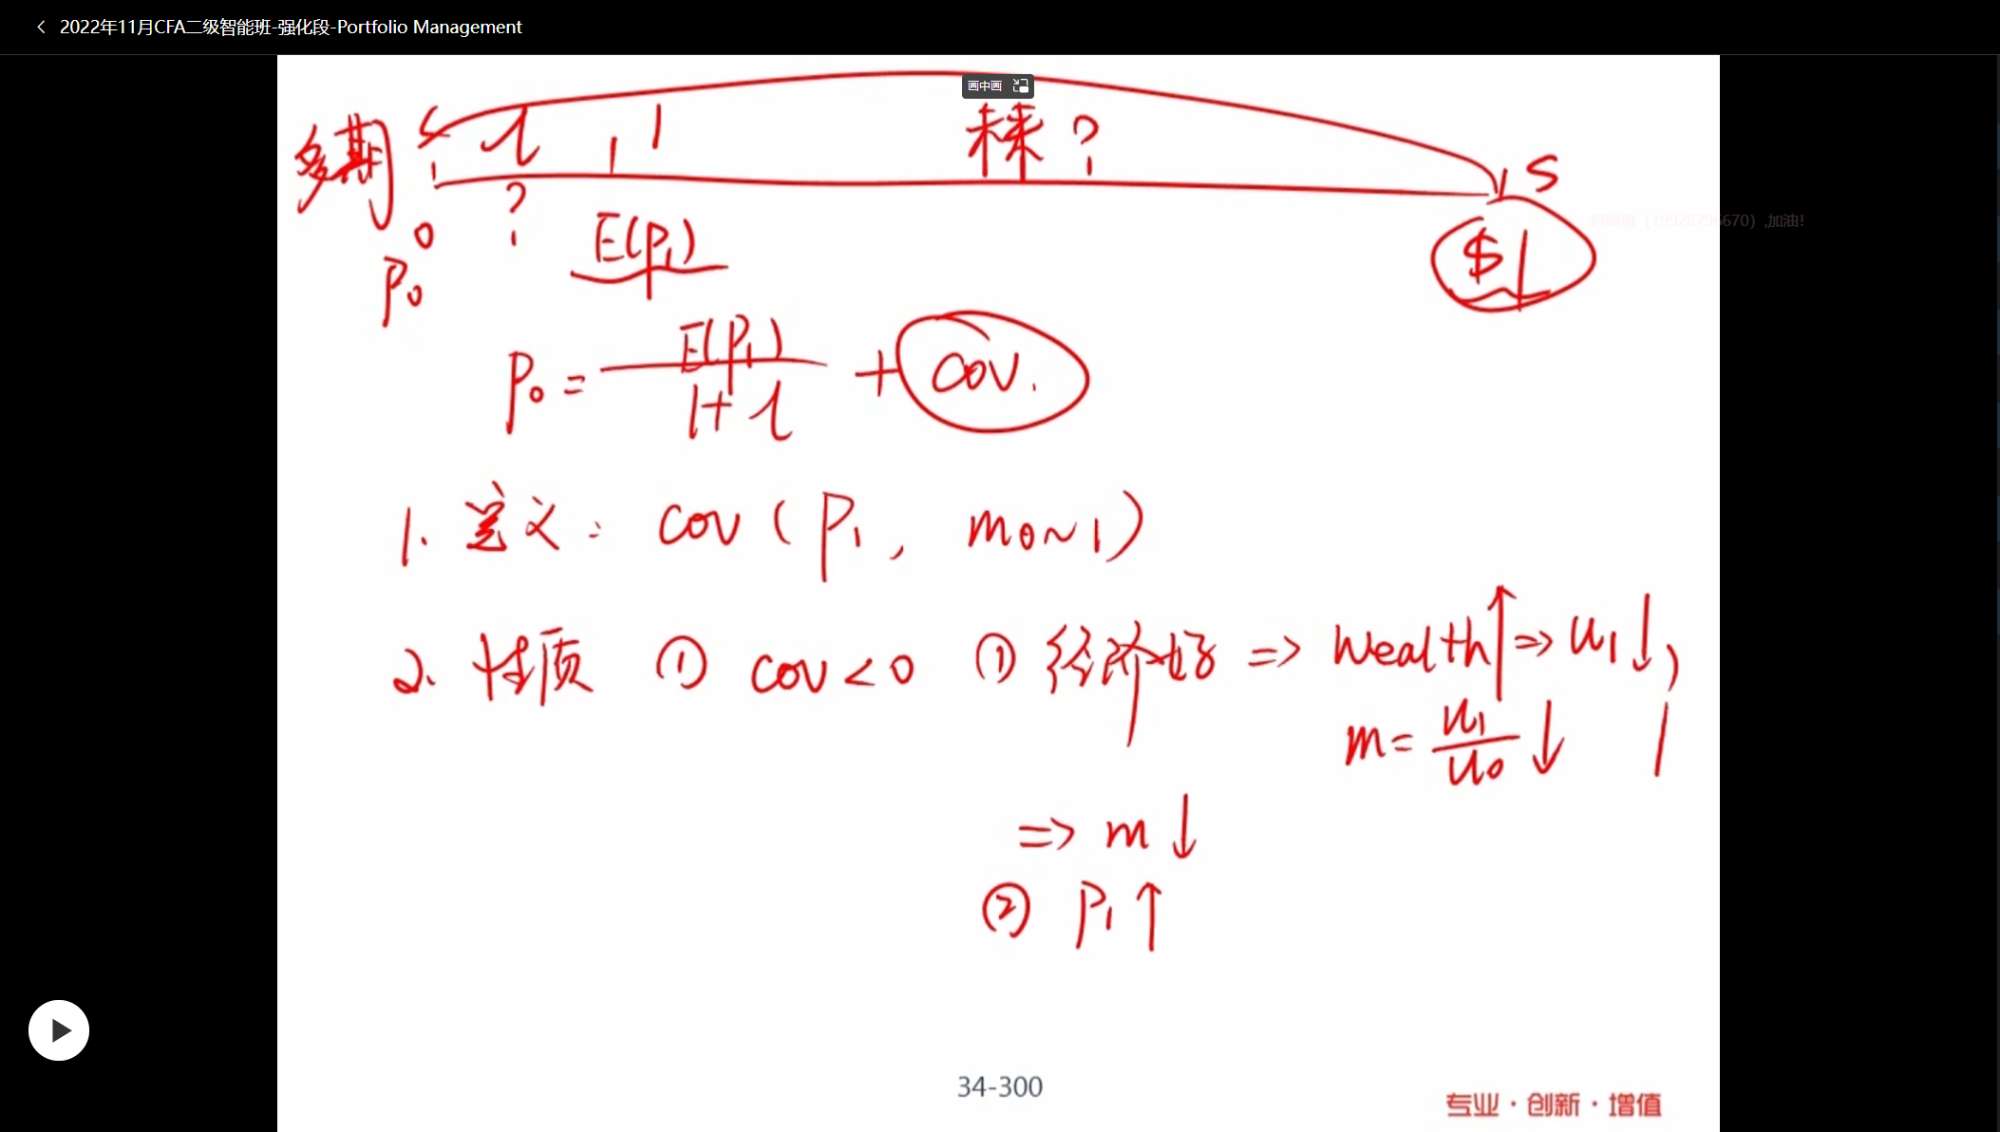 2022年11月CFA二级智能班-强化段-Portfolio Management
画中画
多期 未来? s
0 ? E(P₁) $1
P₀
P₀ = E(P₁) / 1+r + cov.
1. 定义: cov (P₁, m0~1)
2. 性质 ① cov<0 ① 经济好 => wealth↑ => u₁↓,
m = u₁/u₀ ↓
=> m ↓
② P₁ ↑
34-300
专业·创新·增值